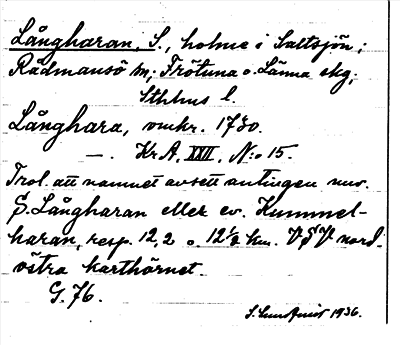 Långharan, S., holme i Saltsjön;
Rådmansö sn; Frötuna o. Länna skg;
Sthlms l.
Långhara, omkr. 1730.
— . Kr. A, XXII, N:o 15.
Trol. att namnet avsett antingen nuv.
S. Långharan eller ev. Kummel-
haran, resp. 12,2 o. 12½ km. VSV nord-
östra karthörnet.
G. 76.
1936.